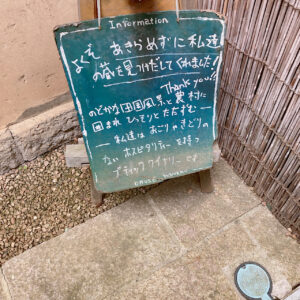 Information
よくぞ あきらめずに私達
の蔵を見つけだしてくれました!
Thank you!!
のどかな田園風景と農村に
囲まれ ひっそりとたたずむ
私達は おごりやきどりの
ない ホスピタリティーを持つ
ブティックワイナリーです。